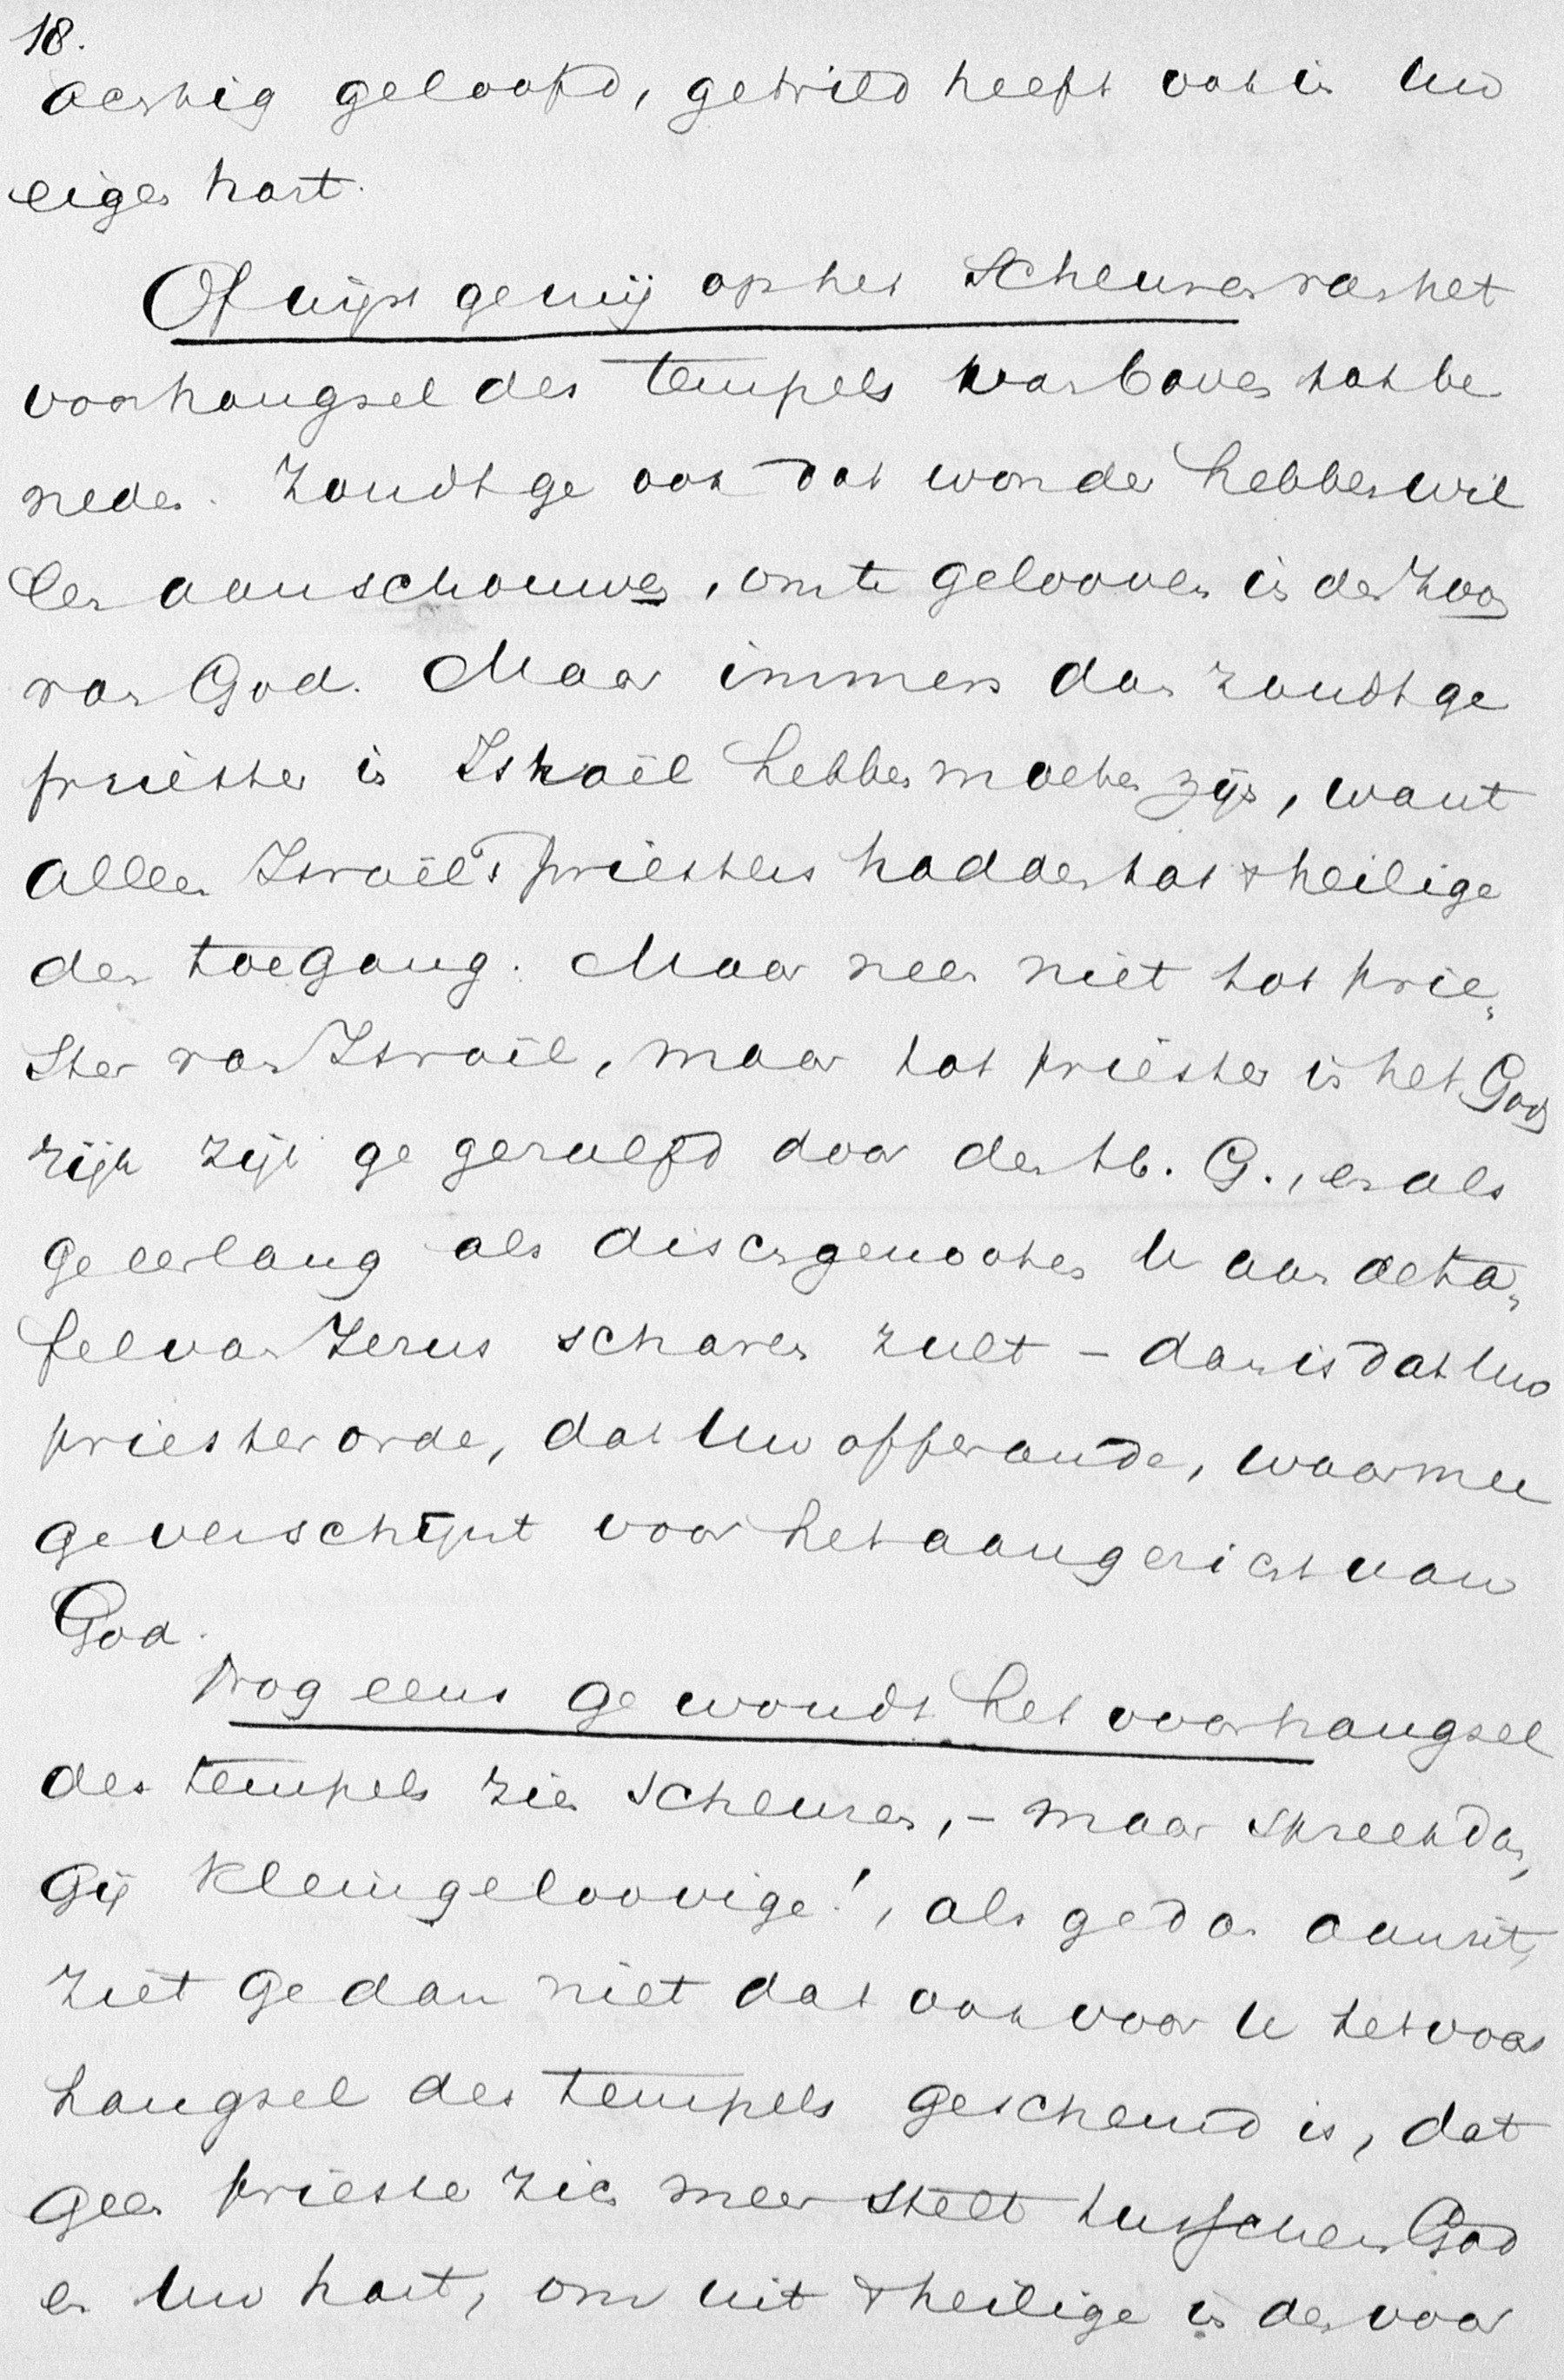 18.
achtig geloofd, getrild heeft ook in Uw
eigen hart.
Of wijst ge mij op het scheuren van het
voorhangsel des tempels van boven tot be
neden. Zoudt ge ook dat wonder hebben wil
len aanschouwen, om te gelooven in den Zoon
van God. Maar immers dan zoudt ge
priester in Israël hebben moeten zijn, want
alleen Israël's priesters hadden tot 't heilige
den toegang. Maar neen niet tot prie„
ster van Israël, maar tot priester in het Gods
rijk zijt ge geroepen door den H. G., en als
ge eerlang als discgenooten U aan de ta„
fel van Jezus scharen zult – dan is dat Uw
priesterorde, dat Uw offerande, waarmee
ge verschijnt voor het aangezicht van
God.
Nog eens ge woudt het voorhangsel
des tempels zien scheuren, – maar spreek dan,
Gij kleingeloovige!, als ge dan aanzit,
ziet ge dan niet dat ook voor U het voor
hangsel des tempels gescheurd is, dat
geen priester zich meer stelt tusschen God
en Uw hart, om uit 't heilige in den voor